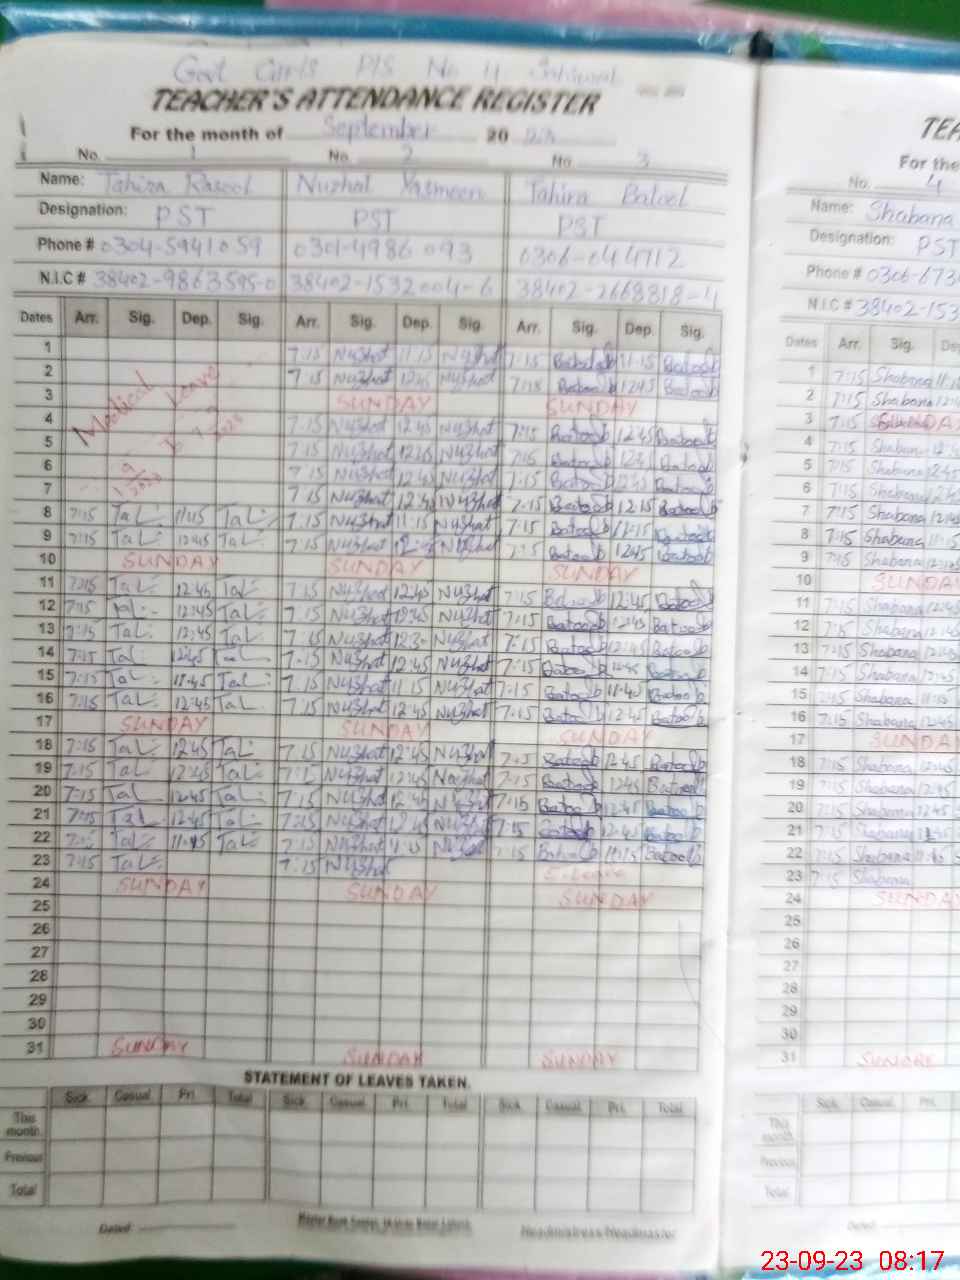 Govt Girls P/S No 4 Sahiwal
TEACHER'S ATTENDANCE REGISTER
For the month of September 2023
No. 1 No. 2 No. 3
Name: Tahira Rasool Nuzhat Yasmeen Tahira Batool
Designation: PST PST PST
Phone # 0304-5941059 0301-4986093 0306-044712
N.I.C # 38402-9863595-0 38402-1532004-6 38402-2668818-4
Dates Arr. Sig. Dep. Sig. Arr. Sig. Dep. Sig. Arr. Sig. Dep. Sig.
1 7:15 Nuzhat 11:15 Nuzhat 7:15 Batool 11:15 Batool
2 7:15 Nuzhat 12:45 Nuzhat 7:15 Batool 12:45 Batool
3 SUNDAY SUNDAY
Medical Leave
4 7:15 Nuzhat 12:45 Nuzhat 7:15 Batool 12:45 Batool
5 7:15 Nuzhat Nuzhat 7:15 Batool Batool
6 7:15 Nuzhat 12:45 Nuzhat 7:15 Batool 12:45 Batool
7 7:15 Nuzhat 12:45 Nuzhat 7:15 Batool 12:15 Batool
8 7:15 Tal 11:15 Tal 7:15 Nuzhat 11:15 Nuzhat 7:15 Batool 11:15 Batool
9 7:15 Tal 12:45 Tal 7:15 Nuzhat Nuzhat 7:15 Batool 12:45 Batool
10 SUNDAY SUNDAY SUNDAY
11 7:15 Tal 12:45 Tal 7:15 Nuzhat 12:45 Nuzhat 7:15 Batool 12:45 Batool
12 7:15 Tal 12:45 Tal 7:15 Nuzhat 12:45 Nuzhat 7:15 Batool 12:45 Batool
13 7:15 Tal 12:45 Tal 7:15 Nuzhat Nuzhat 7:15 Batool 12:45 Batool
14 7:15 Tal 12:45 Tal 7:15 Nuzhat 12:45 Nuzhat 7:15 Batool 12:45 Batool
15 7:15 Tal 11:45 Tal 7:15 Nuzhat 11:15 Nuzhat 7:15 Batool 11:45 Batool
16 7:15 Tal 12:45 Tal 7:15 Nuzhat 12:45 Nuzhat 7:15 Batool 12:45 Batool
17 SUNDAY SUNDAY SUNDAY
18 7:15 Tal 12:45 Tal 7:15 Nuzhat 12:45 Nuzhat 7:15 Batool 12:45 Batool
19 7:15 Tal 12:45 Tal 7:15 Nuzhat 12:45 Nuzhat 7:15 Batool 12:45 Batool
20 7:15 Tal 12:45 Tal 7:15 Nuzhat 12:45 Nuzhat 7:15 Batool 12:45 Batool
21 7:15 Tal 12:45 Tal 7:15 Nuzhat 12:45 Nuzhat 7:15 Batool 12:45 Batool
22 7:15 Tal 11:45 Tal 7:15 Nuzhat Nuzhat 7:15 Batool 11:15 Batool
23 7:15 Tal 7:15 Nuzhat Leave
24 SUNDAY SUNDAY SUNDAY
25
26
27
28
29
30
31 SUNDAY SUNDAY SUNDAY
STATEMENT OF LEAVES TAKEN.
Sick Casual Pri. Total Sick Casual Pri. Total Sick Casual Pri. Total
This month
Previous
Total
Dated: Headmistress/Headmaster
TEA
For the
No. 4
Name: Shabana
Designation: PST
Phone # 0306-673
N.I.C # 38402-153
Dates Arr. Sig. De
1 7:15 Shabana 11:
2 7:15 Shabana 12:4
3 7:15 SUNDA
4 7:15 Shabana
5 7:15 Shabana 12:45
6 7:15 Shabana
7 7:15 Shabana 12:45
8 7:15 Shabana 11:
9 7:15 Shabana
10 SUNDA
11 7:15 Shabana 12:45
12 7:15 Shabana 12:45
13 7:15 Shabana
14 7:15 Shabana 12:45
15 Shabana 11:15
16 7:15 Shabana 12:45
17 SUNDA
18 7:15 Shabana 12:45
19 7:15 Shabana 12:45
20 7:15 Shabana 12:45
21 7:15 Shabana
22 7:15 Shabana 11:45
23 7:15 Shabana
24 SUNDA
25
26
27
28
29
30
31
Sick Casual Pri.
This month
Previous
Total
Dated:
23-09-23 08:17